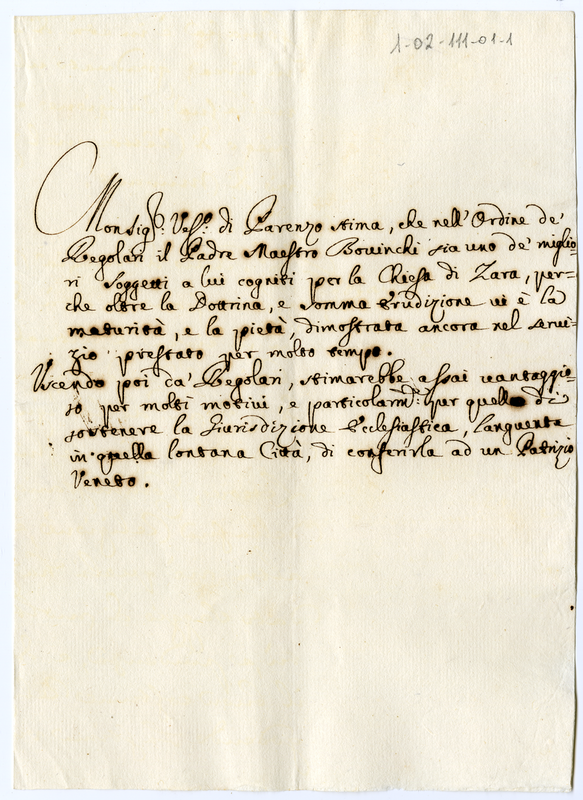 1-02-111-01-1
Monsigr: Vesc: di Parenzo stima, che nell'Ordine de'
Regolari il Padre Maestro Bovinchi sia uno de' miglio=
ri soggetti a lui cogniti per la Chiesa di Zara, per=
che oltre la Dottrina, e somma Erudizione vi è la
maturità, e la pietà, dimostrata ancora nel servi=
zio prestato per molto tempo.
Uscendo poi da' Regolari, stimarebbe assai vantaggio=
so per molti motivi, e particolarmte: per quello di
sostenere la Giurisdizione Ecclesiastica, languente
in quella lontana Città, di conferirla ad un Patrizio
Veneto.